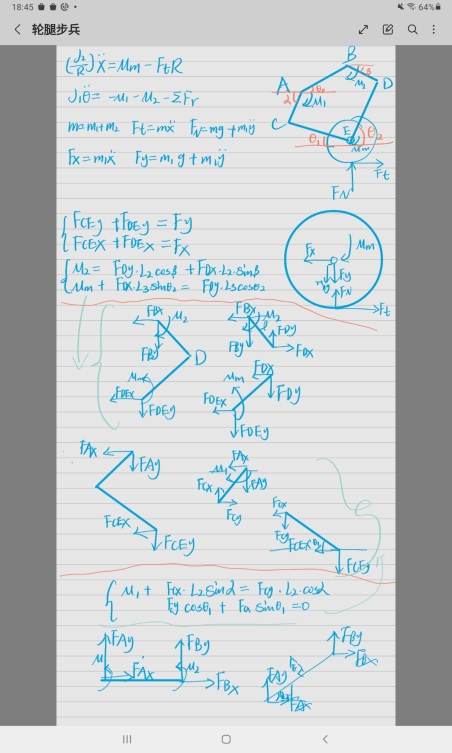 18:45
64%
轮腿步兵
(J₂/R)ẍ = Mm - FtR
J₁θ̈ = -M₁ - M₂ - ΣFr
m = m₁+m₂ Ft = mẍ FN = mg + m₁ÿ
Fx = m₁ẍ Fy = m₁g + m₁ÿ
A
B
D
C
E
θ₀
θ
α
M₁
M₂
θ₁
θ₂
Mm
Ft
FN
FCEy + FDEy = Fy
FCEx + FDEx = Fx
M₂ = FDy·L₂cosβ + FDx·L₂·sinβ
Mm + FDx·L₃sinθ₂ = FDy·L₃cosθ₂
Fx
Mm
Fy
FN
Ft
FBx
M₂
FBy
D
Mm
FDEx
FDEy
FBx
M₂
FBy
FDy
FDx
FDx
Mm
FDy
FDEx
FDEy
FAx
FAy
FCEx
FCEy
FAx
M₁
FAy
FCx
FCy
FCx
FCy
FCEx
θ₁
FCEy
M₁ + FCx·L₂sinα = FCy·L₂cosα
Fy cosθ₁ + Fx sinθ₁ = 0
FAy
FBy
FAx
M₂
FBx
FBy
FBx
FAy
FAx